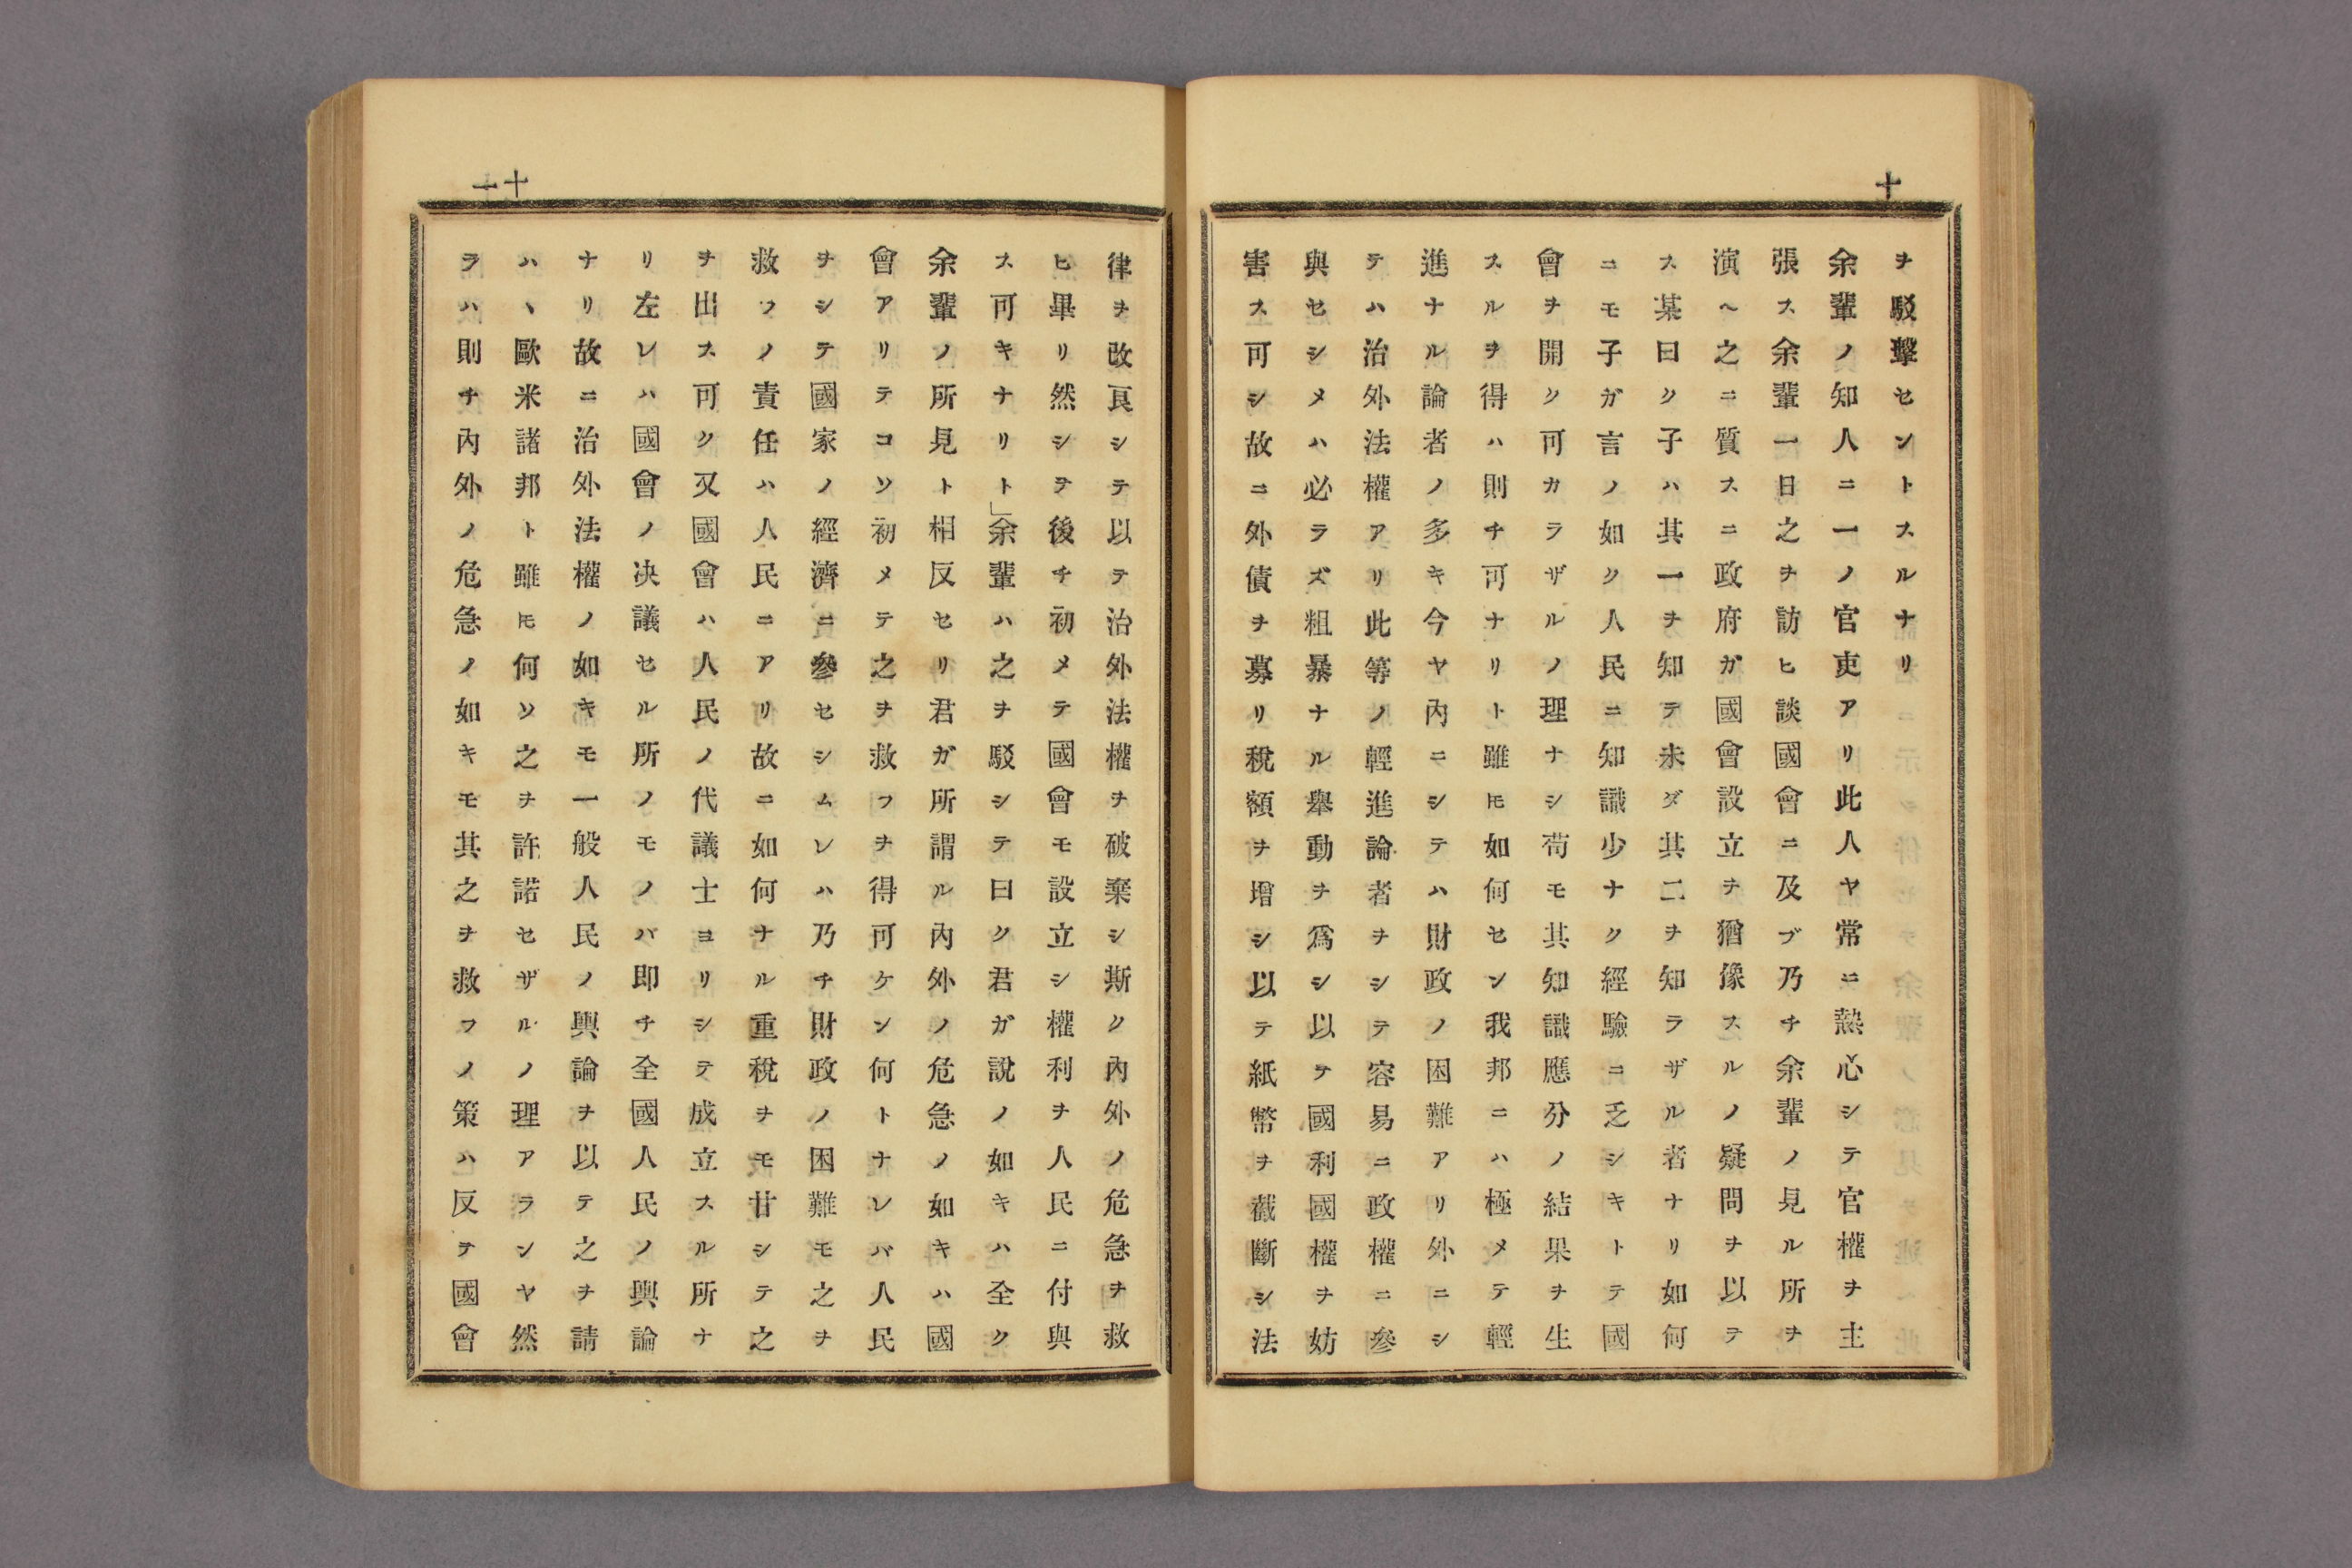 十
ヲ駁擊セントスルナリ
余輩ノ知人ニ一ノ官吏アリ此人ヤ常ニ熱心シテ官權ヲ主
張ス余輩一日之ヲ訪ヒ談國會ニ及ブ乃チ余輩ノ見ル所ヲ
演ヘ之ニ質スニ政府ガ國會設立ヲ猶像スルノ疑問ヲ以テ
ス某曰ク子ハ其一ヲ知テ未ダ其二ヲ知ラザル者ナリ如何
ニモ子ガ言ノ如ク人民ニ知識少ナク經驗ニ乏シキトテ國
會ヲ開ク可カラザルノ理ナシ苟モ其知識應分ノ結果ヲ生
スルヲ得ハ則チ可ナリト雖モ如何セン我邦ニハ極メテ輕
進ナル論者ノ多キ今ヤ內ニシテハ財政ノ困難アリ外ニシ
テハ治外法權アリ此等ノ輕進論者ヲシテ容易ニ政權ニ參
與セシメハ必ラズ粗暴ナル舉動ヲ爲シ以テ國利國權ヲ妨
害ス可シ故ニ外債ヲ募リ稅額ヲ增シ以テ紙幣ヲ截斷シ法
十一
律ヲ改良シテ以テ治外法權ヲ破棄シ斯ク內外ノ危急ヲ救
ヒ畢リ然シヲ後チ初メテ國會モ設立シ權利ヲ人民ニ付與
ス可キナリト」余輩ハ之ヲ駁シテ曰ク君ガ說ノ如キハ全ク
余輩ノ所見ト相反セリ君ガ所謂ル內外ノ危急ノ如キハ國
會アリテコソ初メテ之ヲ救フヲ得可ケン何トナレバ人民
ヲシテ國家ノ經濟ニ參セシムレハ乃チ財政ノ困難モ之ヲ
救フノ責任ハ人民ニアリ故ニ如何ナル重稅ヲモ甘シテ之
ヲ出ス可ク又國會ハ人民ノ代議士ヨリシテ成立スル所ナ
リ左レハ國會ノ決議セル所ノモノバ即チ全國人民ノ輿論
ナリ故ニ治外法權ノ如キモ一般人民ノ輿論ヲ以テ之ヲ請
ハヽ歐米諸邦ト雖モ何ソ之ヲ許諾セザルノ理アランヤ然
ラハ則チ內外ノ危急ノ如キモ其之ヲ救フノ策ハ反テ國會